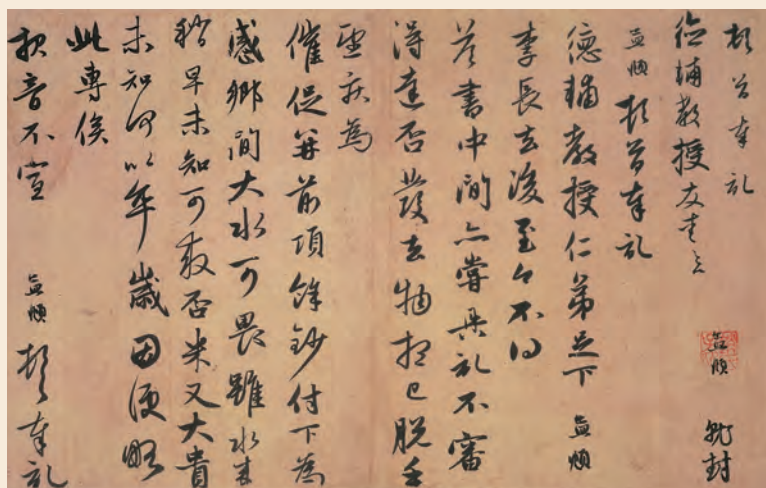 頓首奉記
德輔教授友愛
孟頫 封
孟頫頓首奉記
德輔教授仁弟足下 孟頫
李長去後至今不得
答書中間亦嘗具記不審
得達否發去物想已脫手
望疾為
催促并前項餘鈔付下為
感鄉間大水可畏雖水來
稍早未知可救否米又大貴
未知何以卒歲因便略
此專俟
報音不宣 孟頫頓首奉記